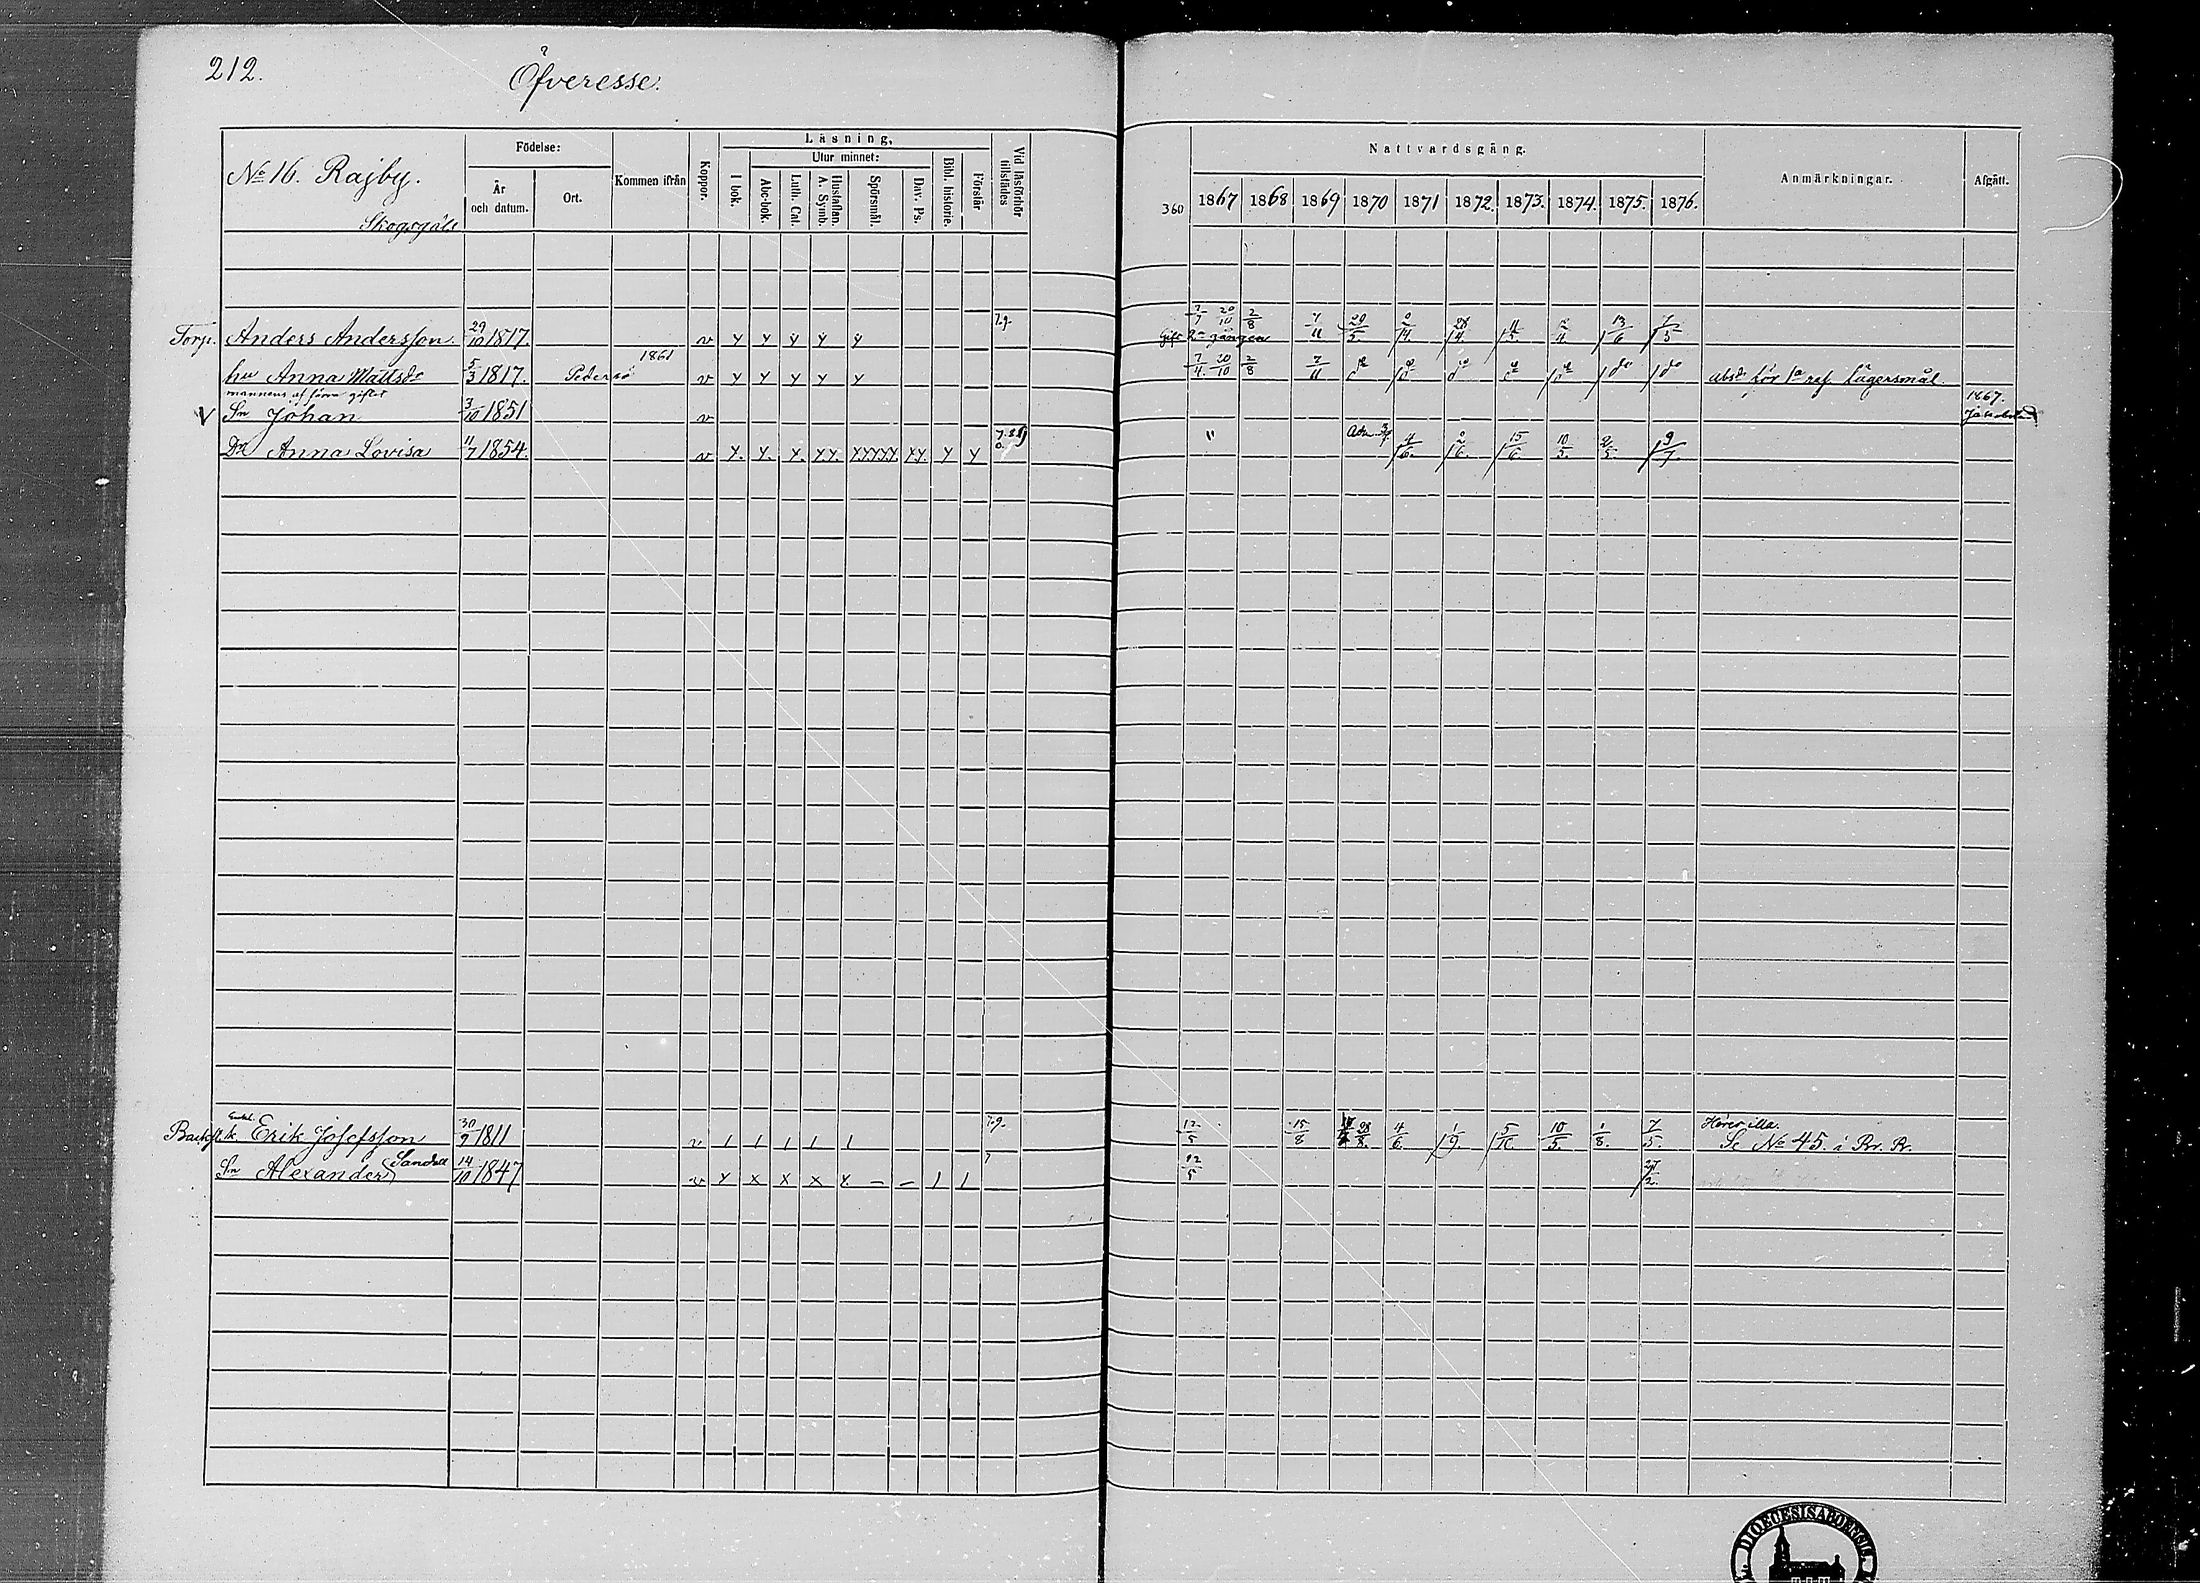 212.
Öfveresse.
No 16. Rajby.
Skogsgäls
Födelse:
År
och datum.
Ort.
Kommen ifrån
Koppor.
Läsning,
Utur minnet:
I bok.
Abc-bok.
Luth. Cat.
Hustaflan.
A. Symb.
Spörsmål.
Dav. Ps.
Bibl. historie.
Förstår
Vid läsförhör
tillstädes
360
Nattvardsgång.
1867 1868 1869 1870 1871 1872. 1873. 1874. 1875. 1876.
Anmärkningar.
Afgått.
7/7 20/10 2/8
Torp. Anders Andersson 29/10 1817. v y y y y y 7.9. Gift 2a gången 7/11
1861
hu Anna Mattsdr 5/3 1817. Pedersö v y y y y y 7/4. 20/10 2/8 7/11 do do absdt för 1a res. lägersmål.
mannens af förra giftet
V Sn Johan 3/10 1851 v 1867. Jakobstad
Dr Anna Lovisa 11/7 1854. v y. y. y. yy. yyyyy yy. y y " 4/6. 2/6. 15/6. 10/5. 9/7.
Backst. Erik Josefsson 30/9 1811 v 1 1 1 1 1 7.9. 12/5 15/8 28/8. 4/6. 1/9. 10/5. 1/8. 7/5. Hörer illa.
Se No 45. i Br. Br.
Sn Alexander Sandell 14/10 1847 v y x x x y. – – 1 1 7 12/5 27/2.
DIOECESIS ABOENSIS